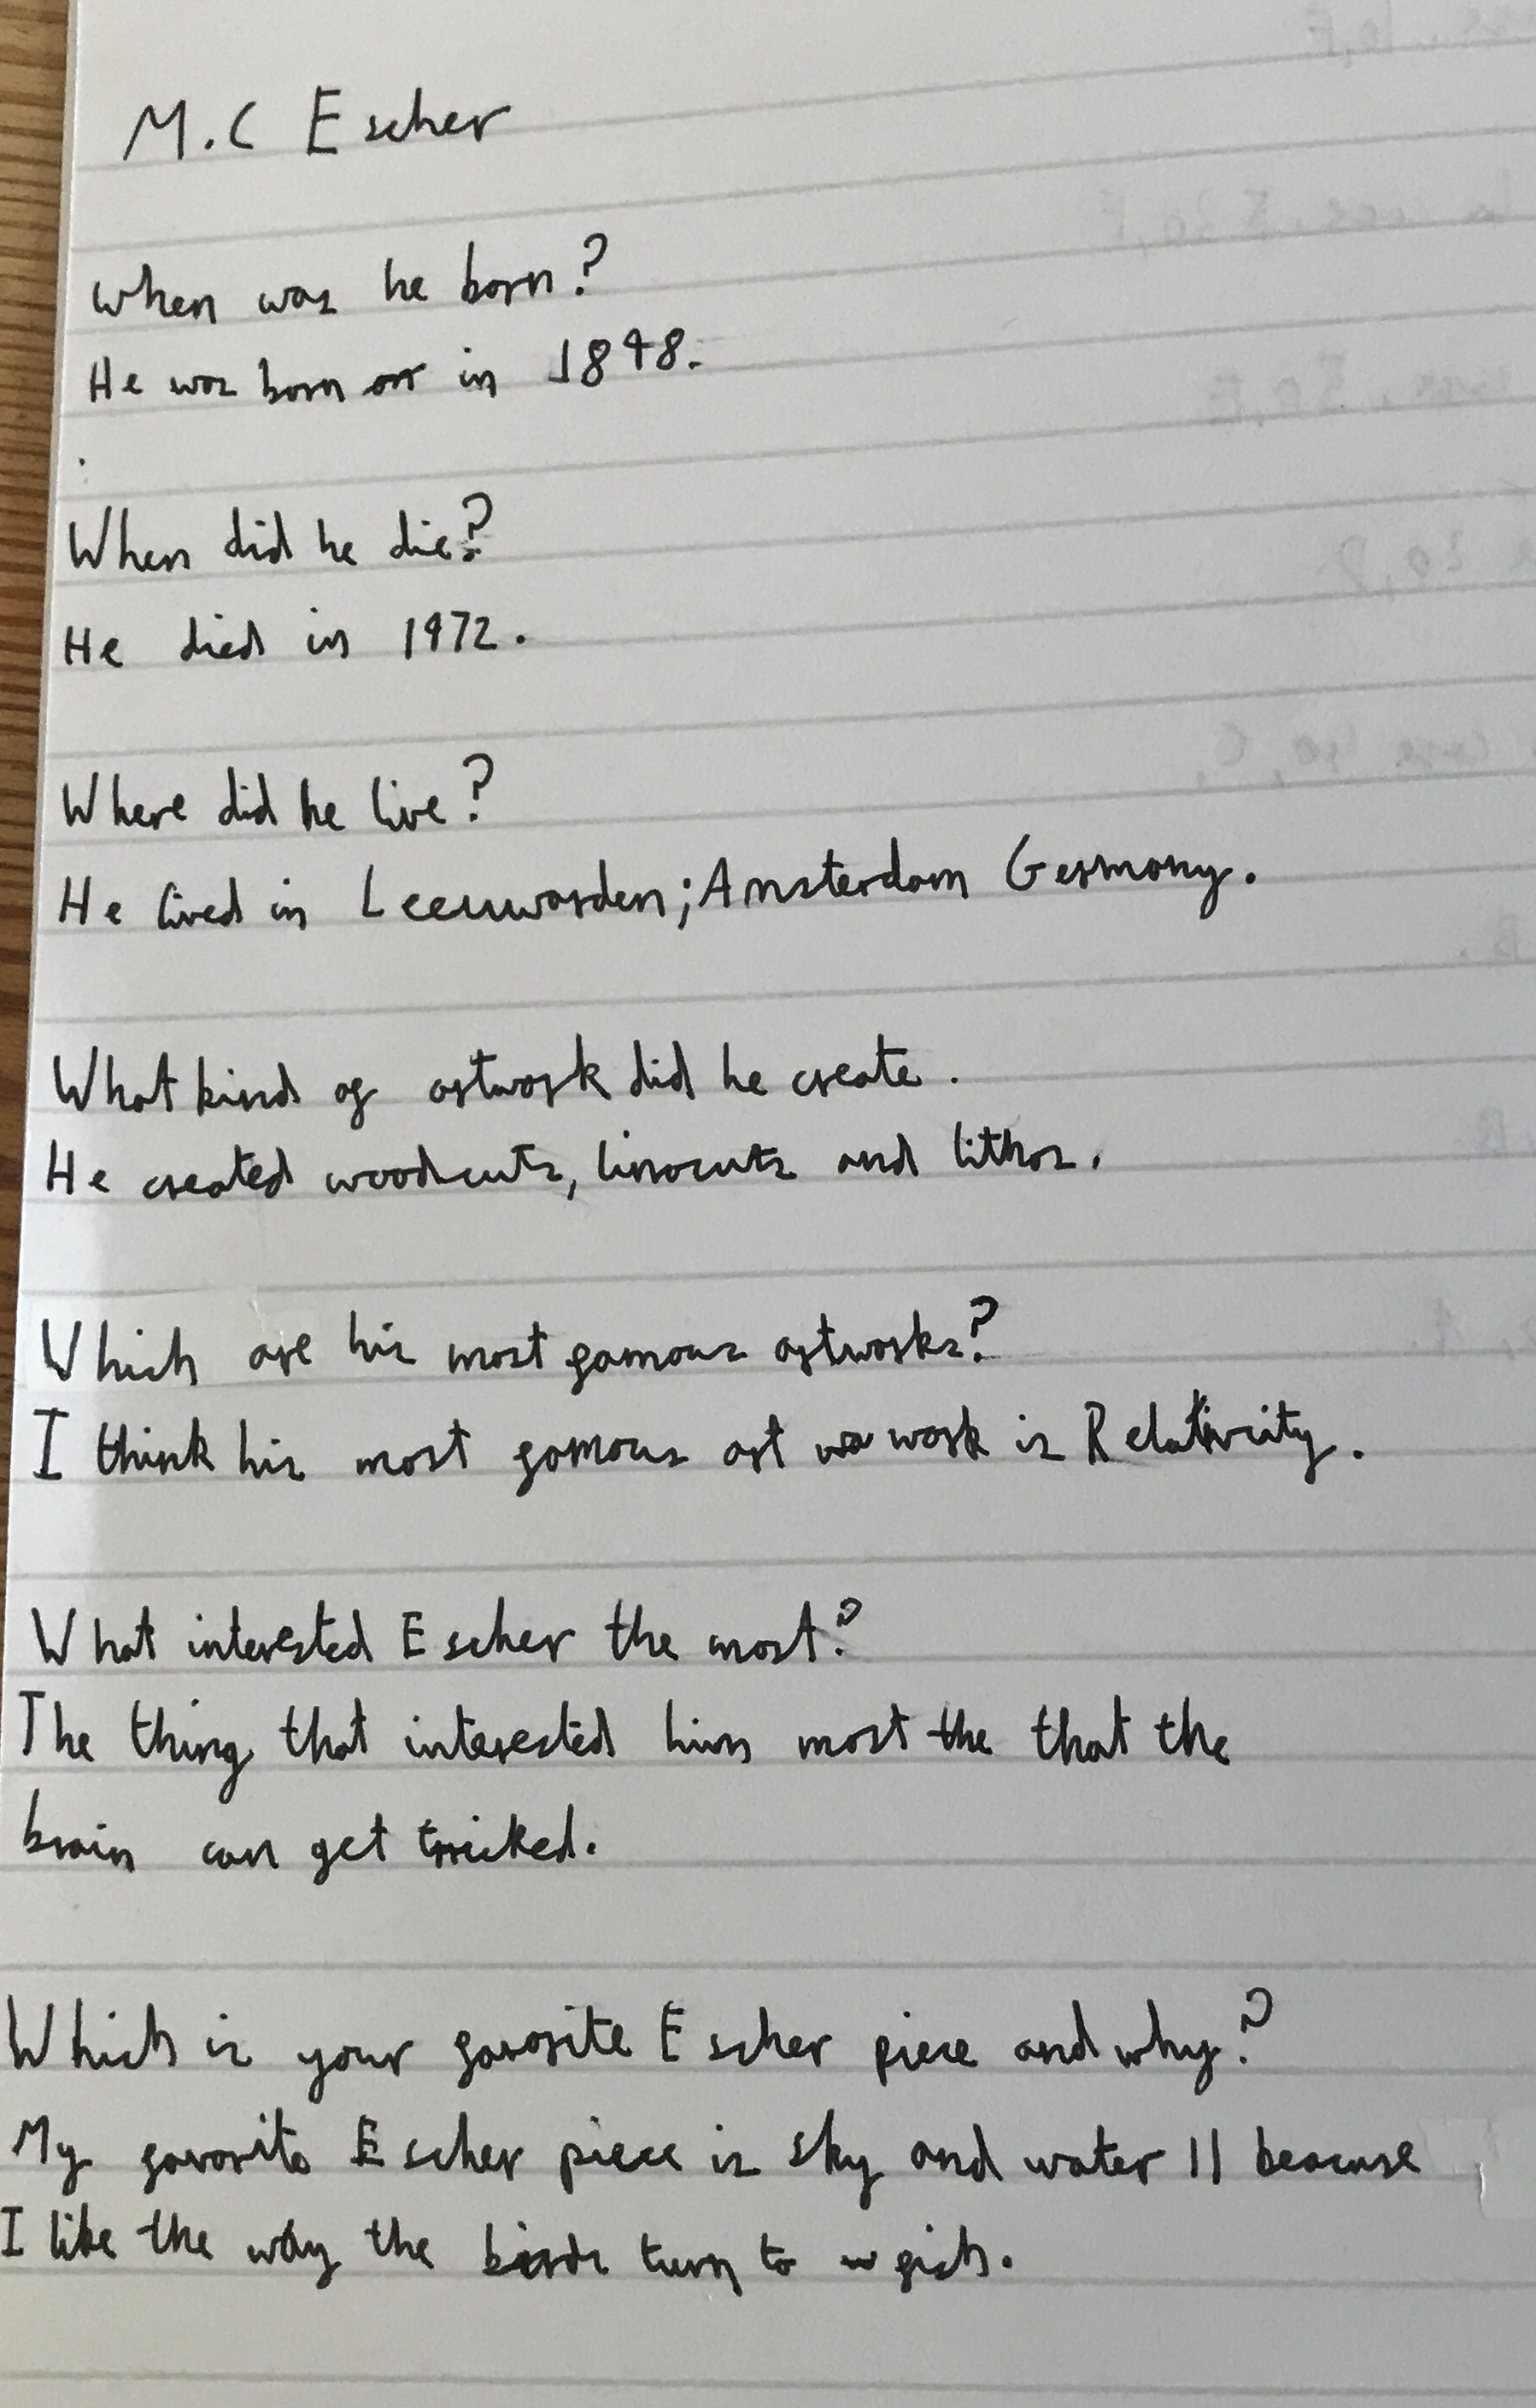 M.C Escher
When was he born?
He was born on in 1898.
When did he die?
He died in 1972.
Where did he live?
He lived in Leeuwarden; Amsterdam Germany.
What kind of artwork did he create.
He created woodcuts, linocuts and lithos.
Which are his most famous artworks?
I think his most famous art wo work is Relativity.
What interested Escher the most?
The thing that interested him most the that the
brain can get tricked.
Which is your favorite Escher piece and why?
My favorite Escher piece is sky and water II beacuse
I like the way the birds turn to fish.